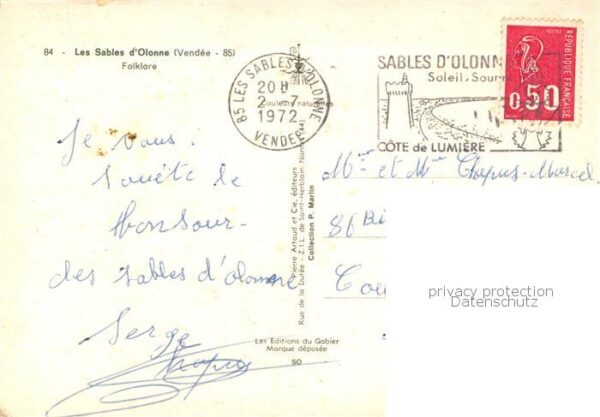 84 - Les Sables d'Olonne (Vendée - 85)
Folklore
85 LES SABLES D'OLONNE
20H
2-7
1972
VENDEE
SABLES D'OLONNE
Soleil, Sour
CÔTE de LUMIÈRE
POSTES
RÉPUBLIQUE FRANÇAISE
0,50
Couleurs naturelles
Je vous
souète le
bonsour
des sables d'olonne
Serge
Chapus
Pierre Artaud et Cie, éditeurs
Rue de la Durée - Z.I.L. de Saint-Herblain Nantes (44)
Collection P. Marlin
Les Editions du Gabier
Marque déposée
SO
Mme et Mr Chapus Marcel
86 Bi
Cou
privacy protection
Datenschutz